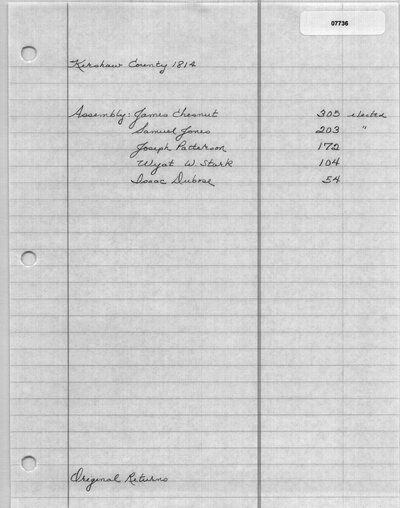 07736
Kershaw County 1814
Assembly: James Chesnut 305 elected
Samuel Jones 203 "
Joseph Patterson 172
Wyat W Stark 104
Isaac Dubose 54
Original Returns